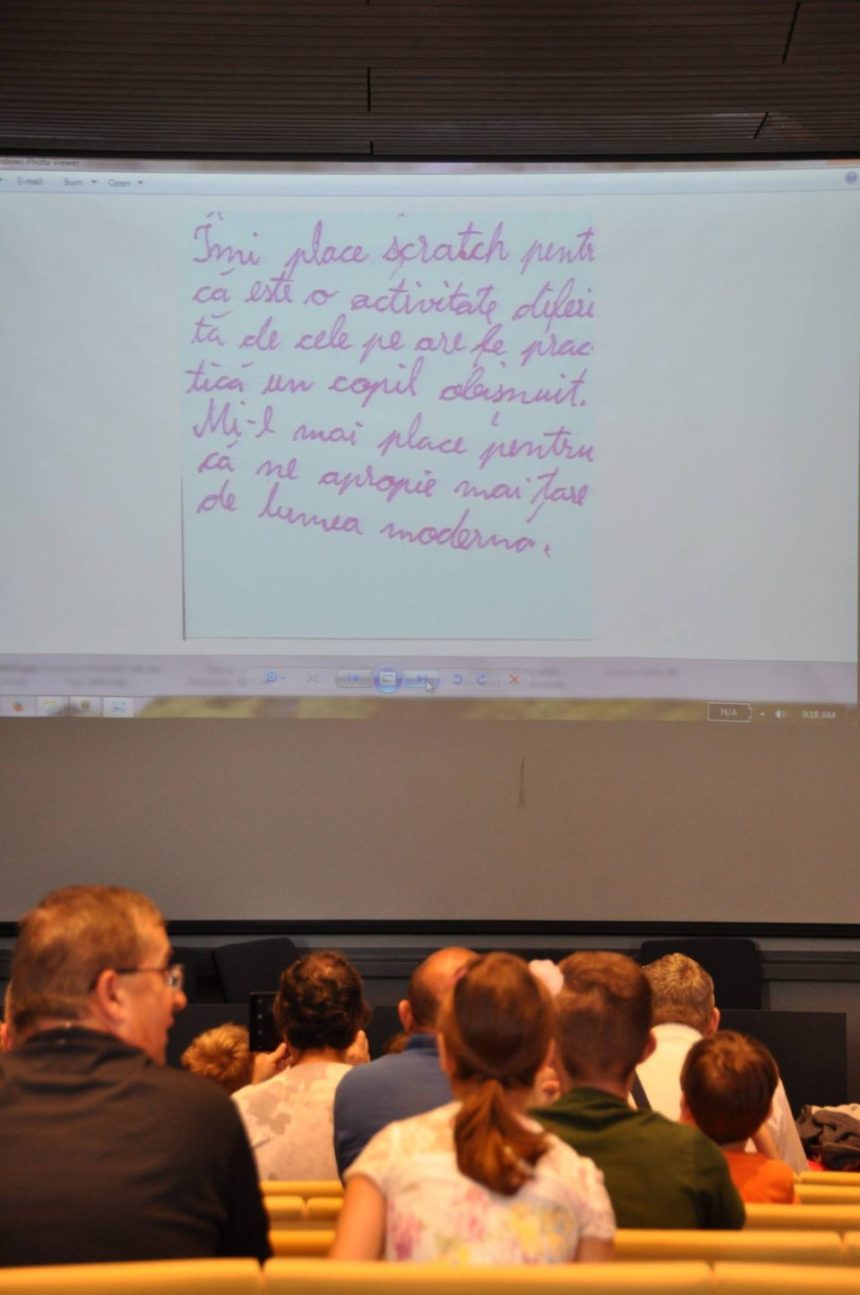 Windows Photo Viewer
E-mail Burn Open
Îmi place scratch pentr
că este o activitate diferi
tă de cele pe are le prac
tică un copil obișnuit.
Mi-l mai place pentru
că ne apropie mai tare
de lumea moderna.
N/A 9:13 AM